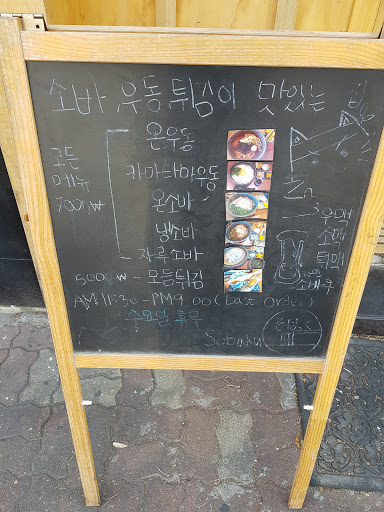 소바 우동 튀김이 맛있는 집
온우동
모든 메뉴 7000₩
카마타마우동
온소바
냉소바
자루소바
5000₩ - 모듬튀김
AM 11:30 - PM 9:00 (Last order)
수요일 휴무
우맥
소맥
튀맥
Sobaku